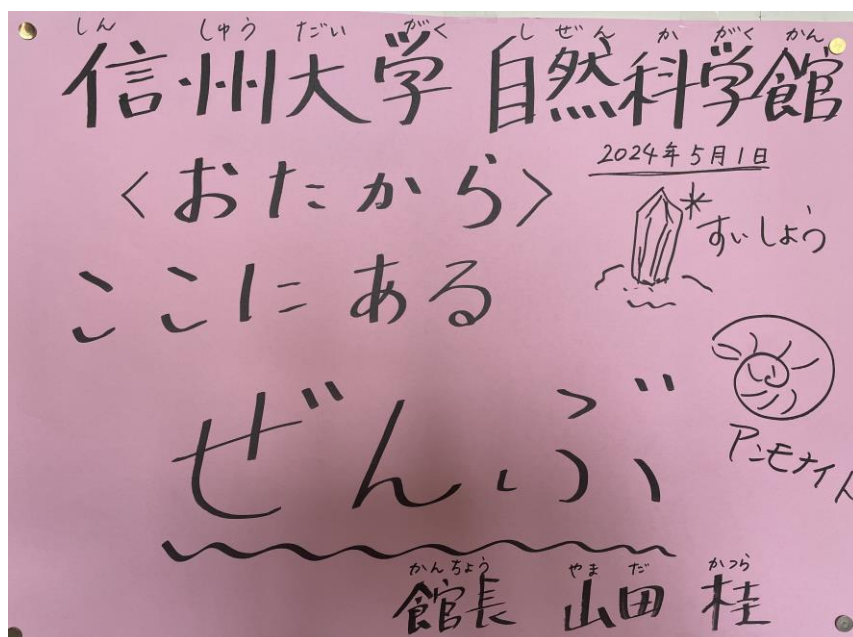 しん しゅう だい がく し ぜん か がく かん
信州大学 自然科学館
2024年5月1日
<おたから>
すいしょう
ここにある
アンモナイト
ぜんぶ
かんちょう やま だ かつら
館長 山田 桂